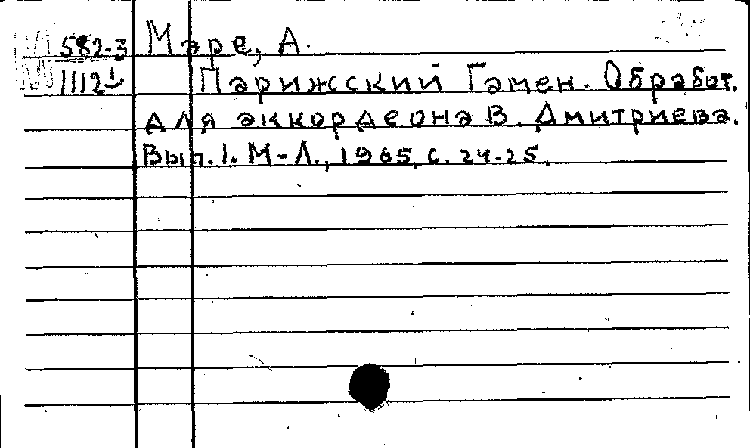 582-3 Маре, А.
1112 Парижский Гамен. Обработ.
для аккордеона В. Дмитриева.
Вып. 1. М-Л., 1965, с. 24-25.